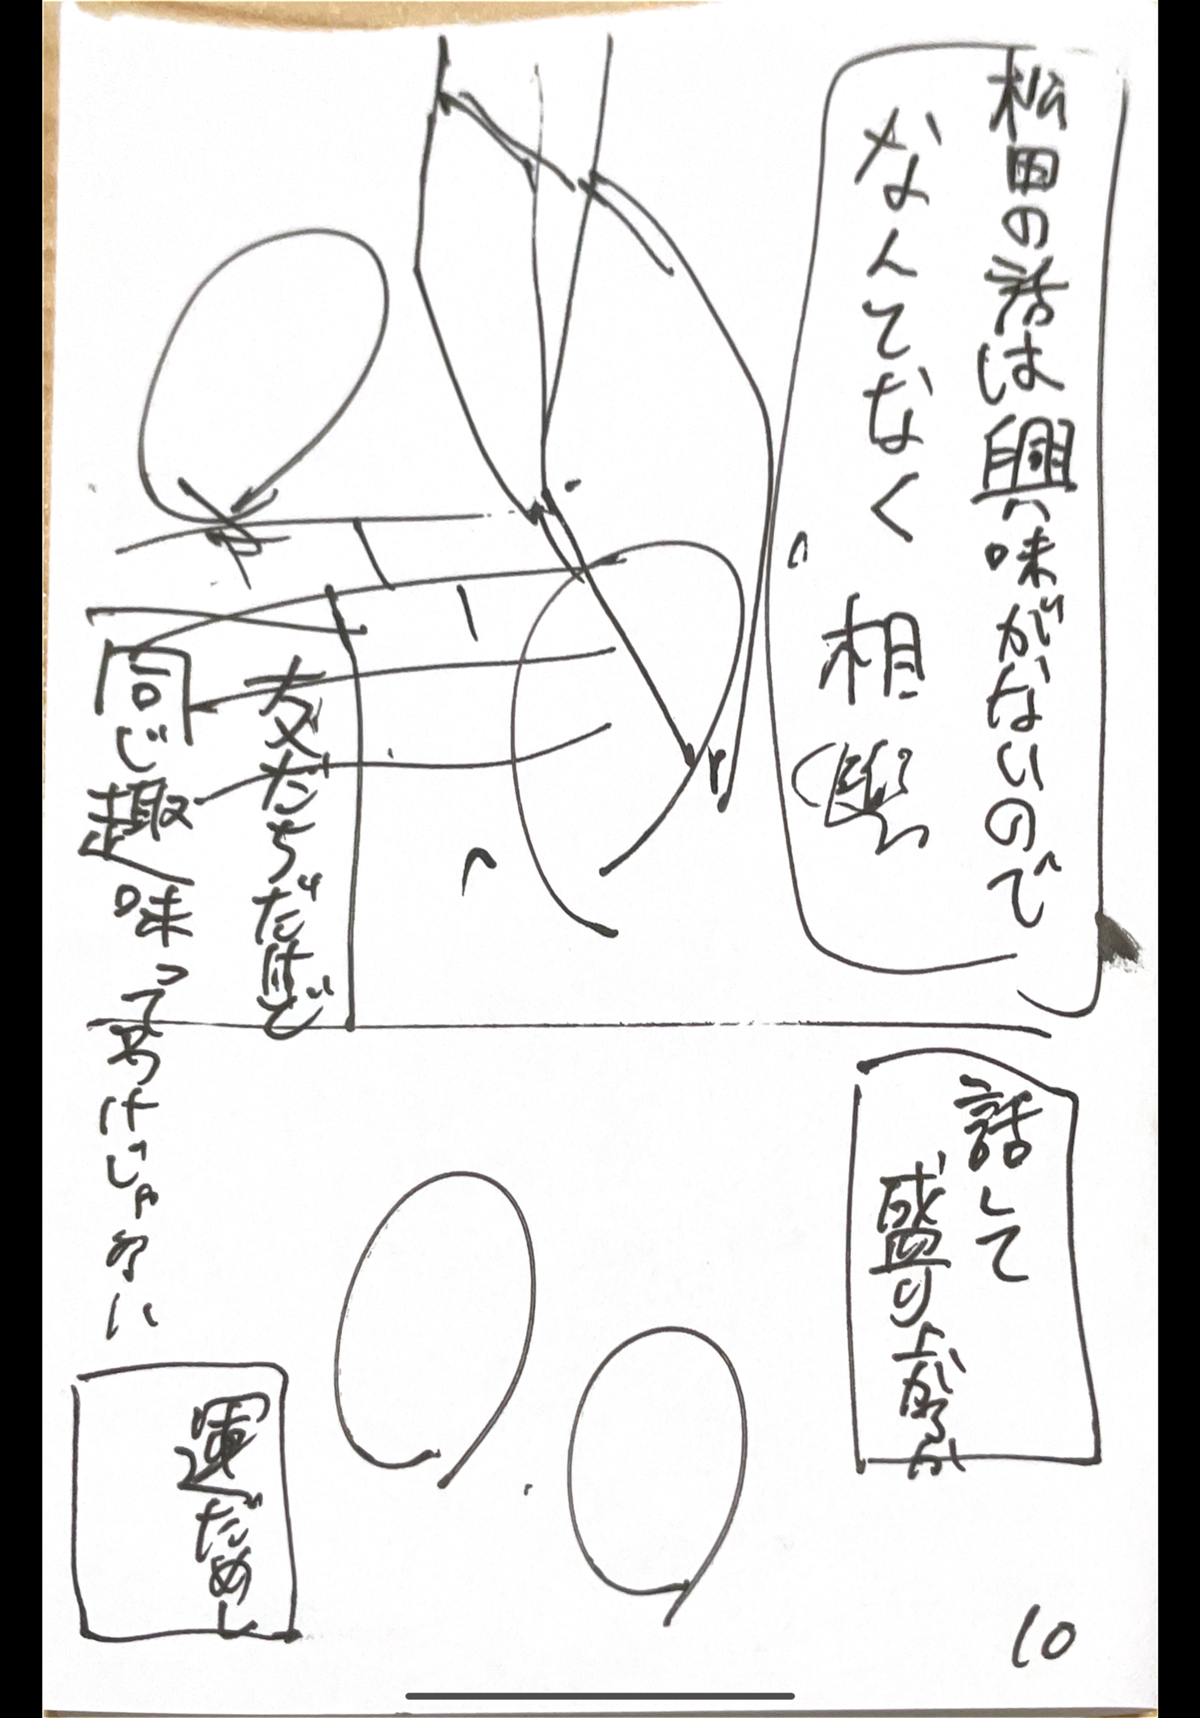 松田の話は興味がないので
なんてなく 相
友だちだけど
同じ趣味ってわけじゃない
話して
盛り上がるか
運だめし
10